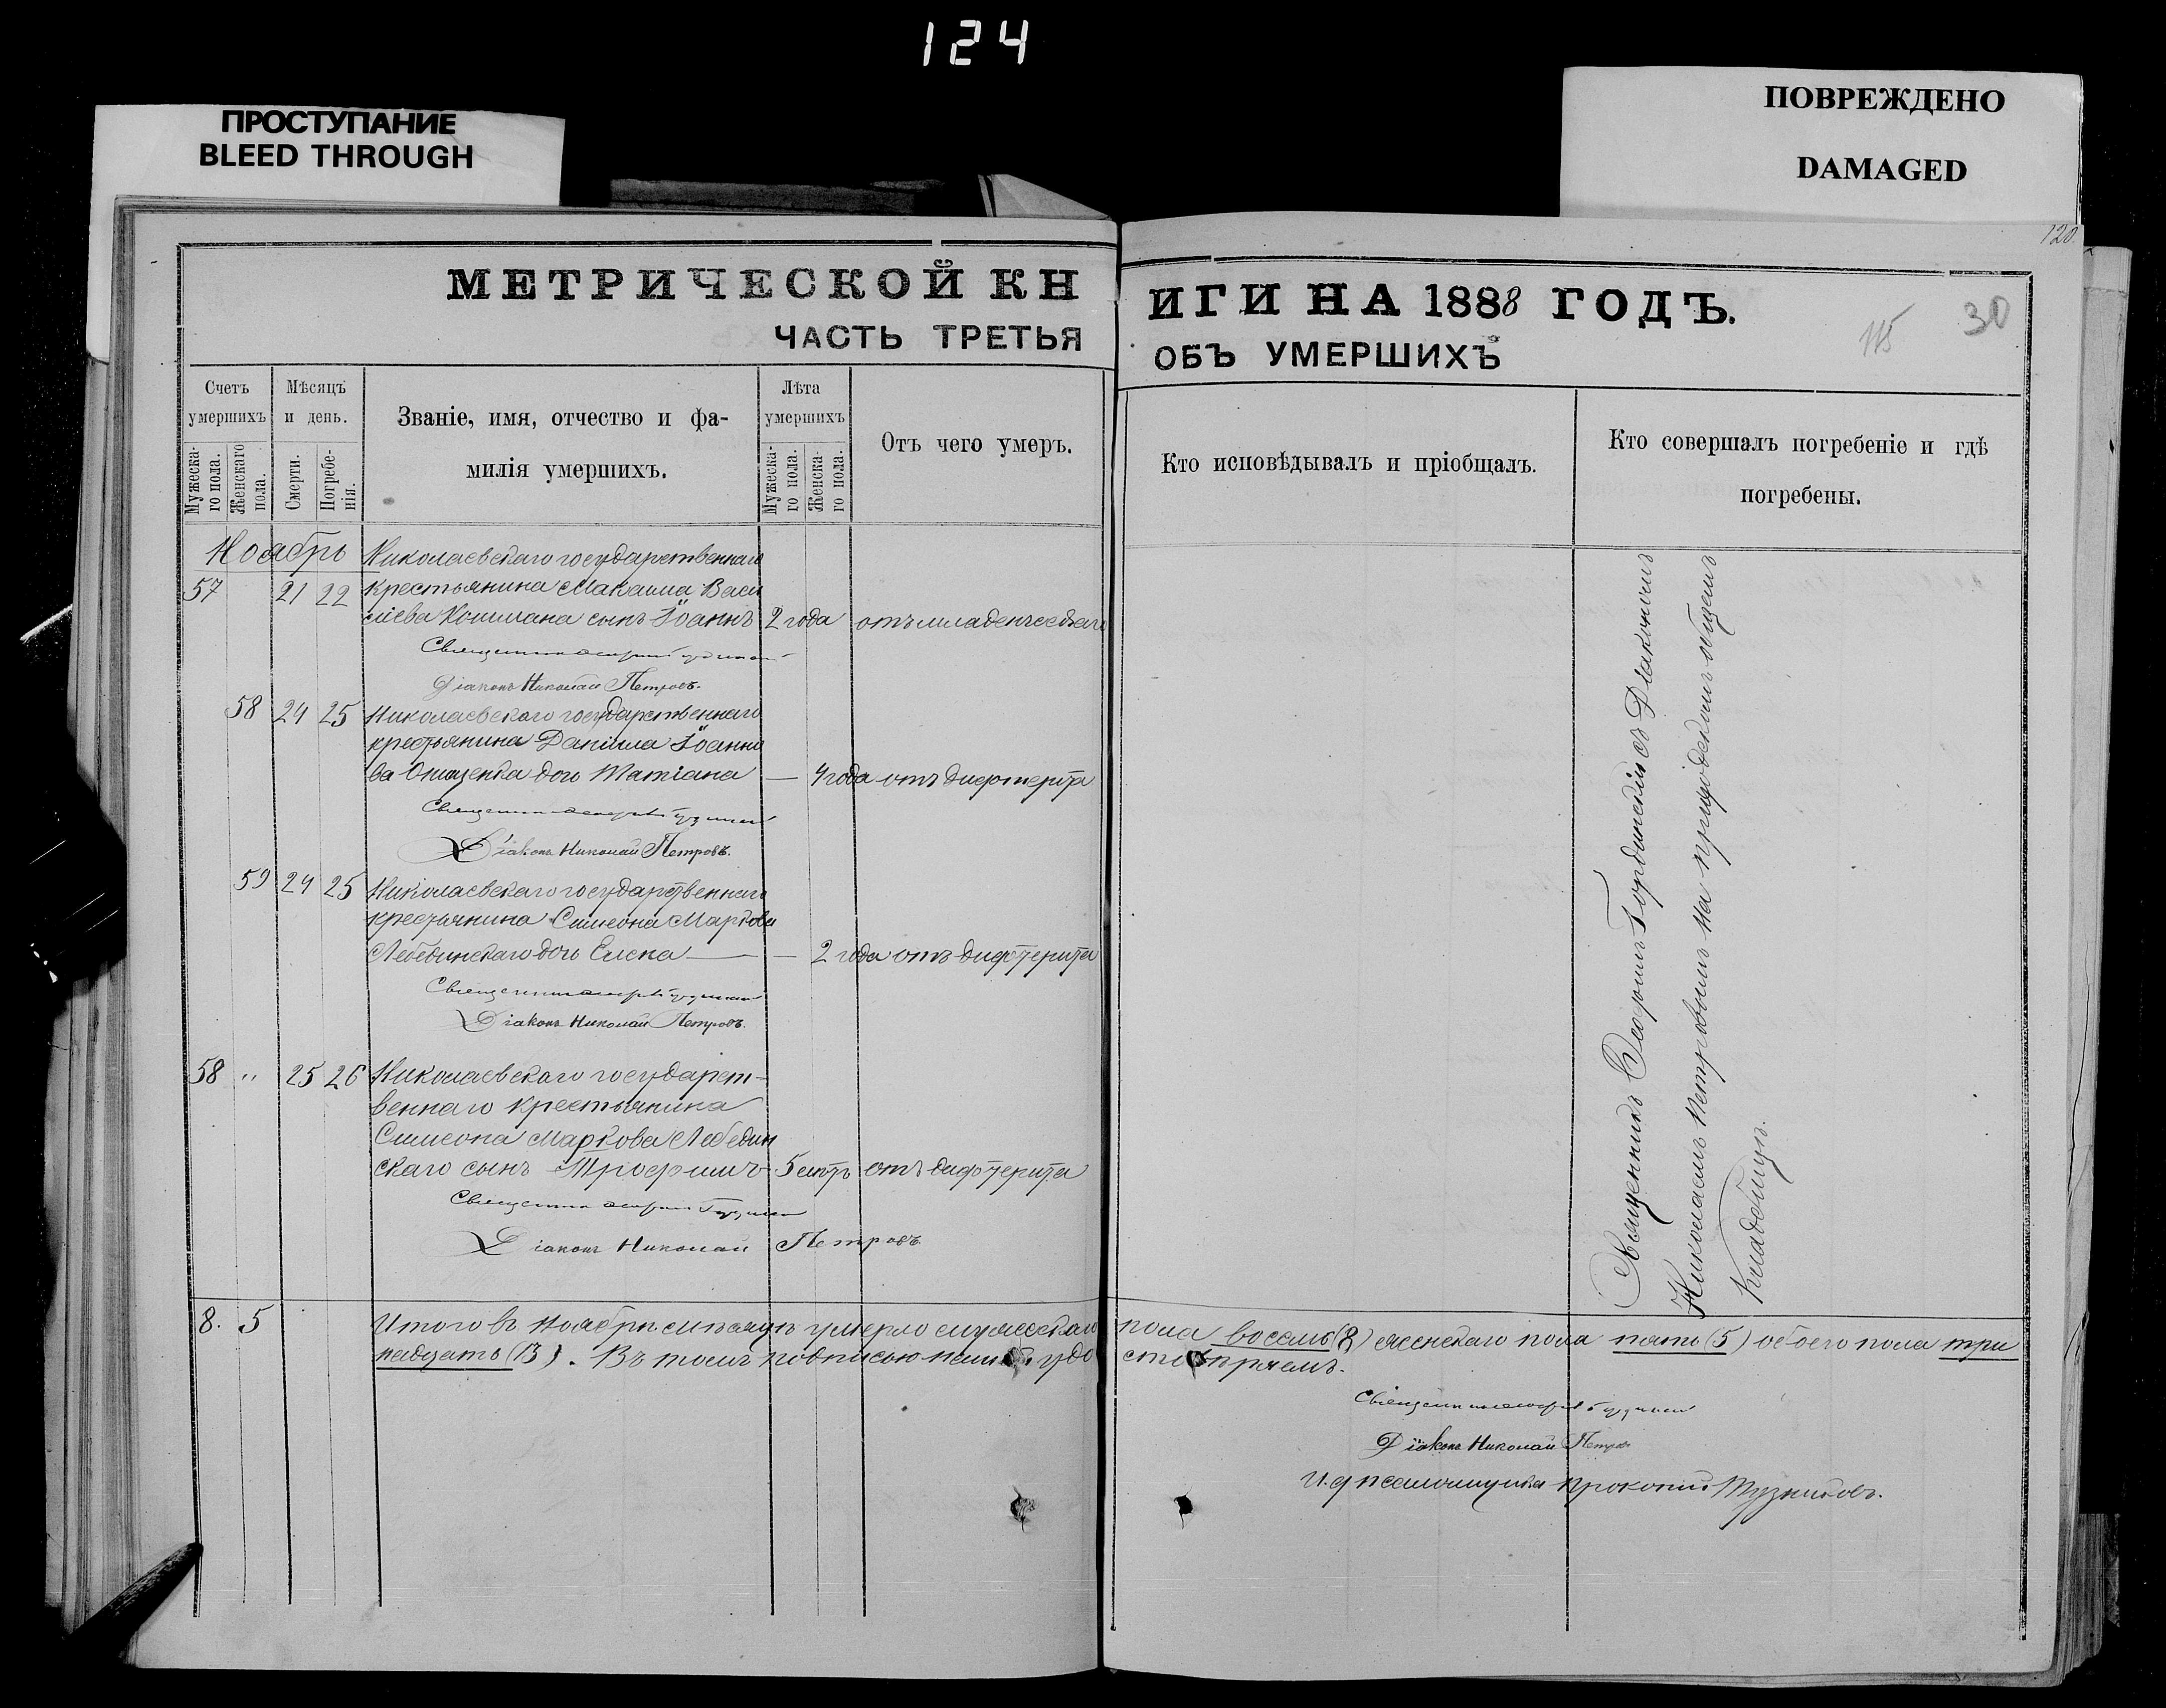 124
ПРОСТУПАНИЕ
BLEED THROUGH
ПОВРЕЖДЕНО
DAMAGED
120.
МЕТРИЧЕСКОЙ КН
ИГИ НА 1888 ГОДЪ.
115
30
ЧАСТЬ ТРЕТЬЯ
ОБЪ УМЕРШИХЪ
Счетъ умершихъ
Мужеска-го пола.
Женскаго пола.
Мѣсяцъ и день.
Смерти.
Погребе-нія.
Званіе, имя, отчество и фа-
милія умершихъ.
Лѣта умершихъ
Мужеска-го пола.
Женска-го пола.
Отъ чего умеръ.
Кто исповѣдывалъ и пріобщалъ.
Кто совершалъ погребеніе и гдѣ
погребены.
Ноябрь Николаевскаго государственнаго
57 21 22 крестьянина Макаима Васи
лiева Кошмана сынъ Іоаннъ 2 года отъ младенческаго
Діаконъ Николай Петровъ.
58 24 25 Николаевскаго государственнаго
крестьянина Даніила Іоанно
ва дочь Татіана — 4 года отъ дифтерита
Діаконъ Николай Петровъ.
59 24 25 Николаевскаго государственнаго
крестьянина Симеона Маркова
Лебединскаго дочь Елена — — 2 года отъ дифтерита
Діаконъ Николай Петровъ.
58 " 25 26 Николаевскаго государст-
веннаго крестьянина
Симеона Маркова Лебедин
скаго сынъ Трофимъ 5 лѣтъ отъ дифтерита
Діаконъ Николай Петровъ.
Священникъ съ Діакономъ
Николаемъ Петровымъ на приходскомъ общемъ
кладбищѣ.
8. 5 Итого въ Ноябрѣ мѣсяцѣ умерло мужескаго пола восемь (8) женскаго пола пять (5) обоего пола три
надцать (13). Въ томъ подписью нашей удо стовѣряемъ.
Діаконъ Николай Петровъ
И. д. псаломщика Прокопій